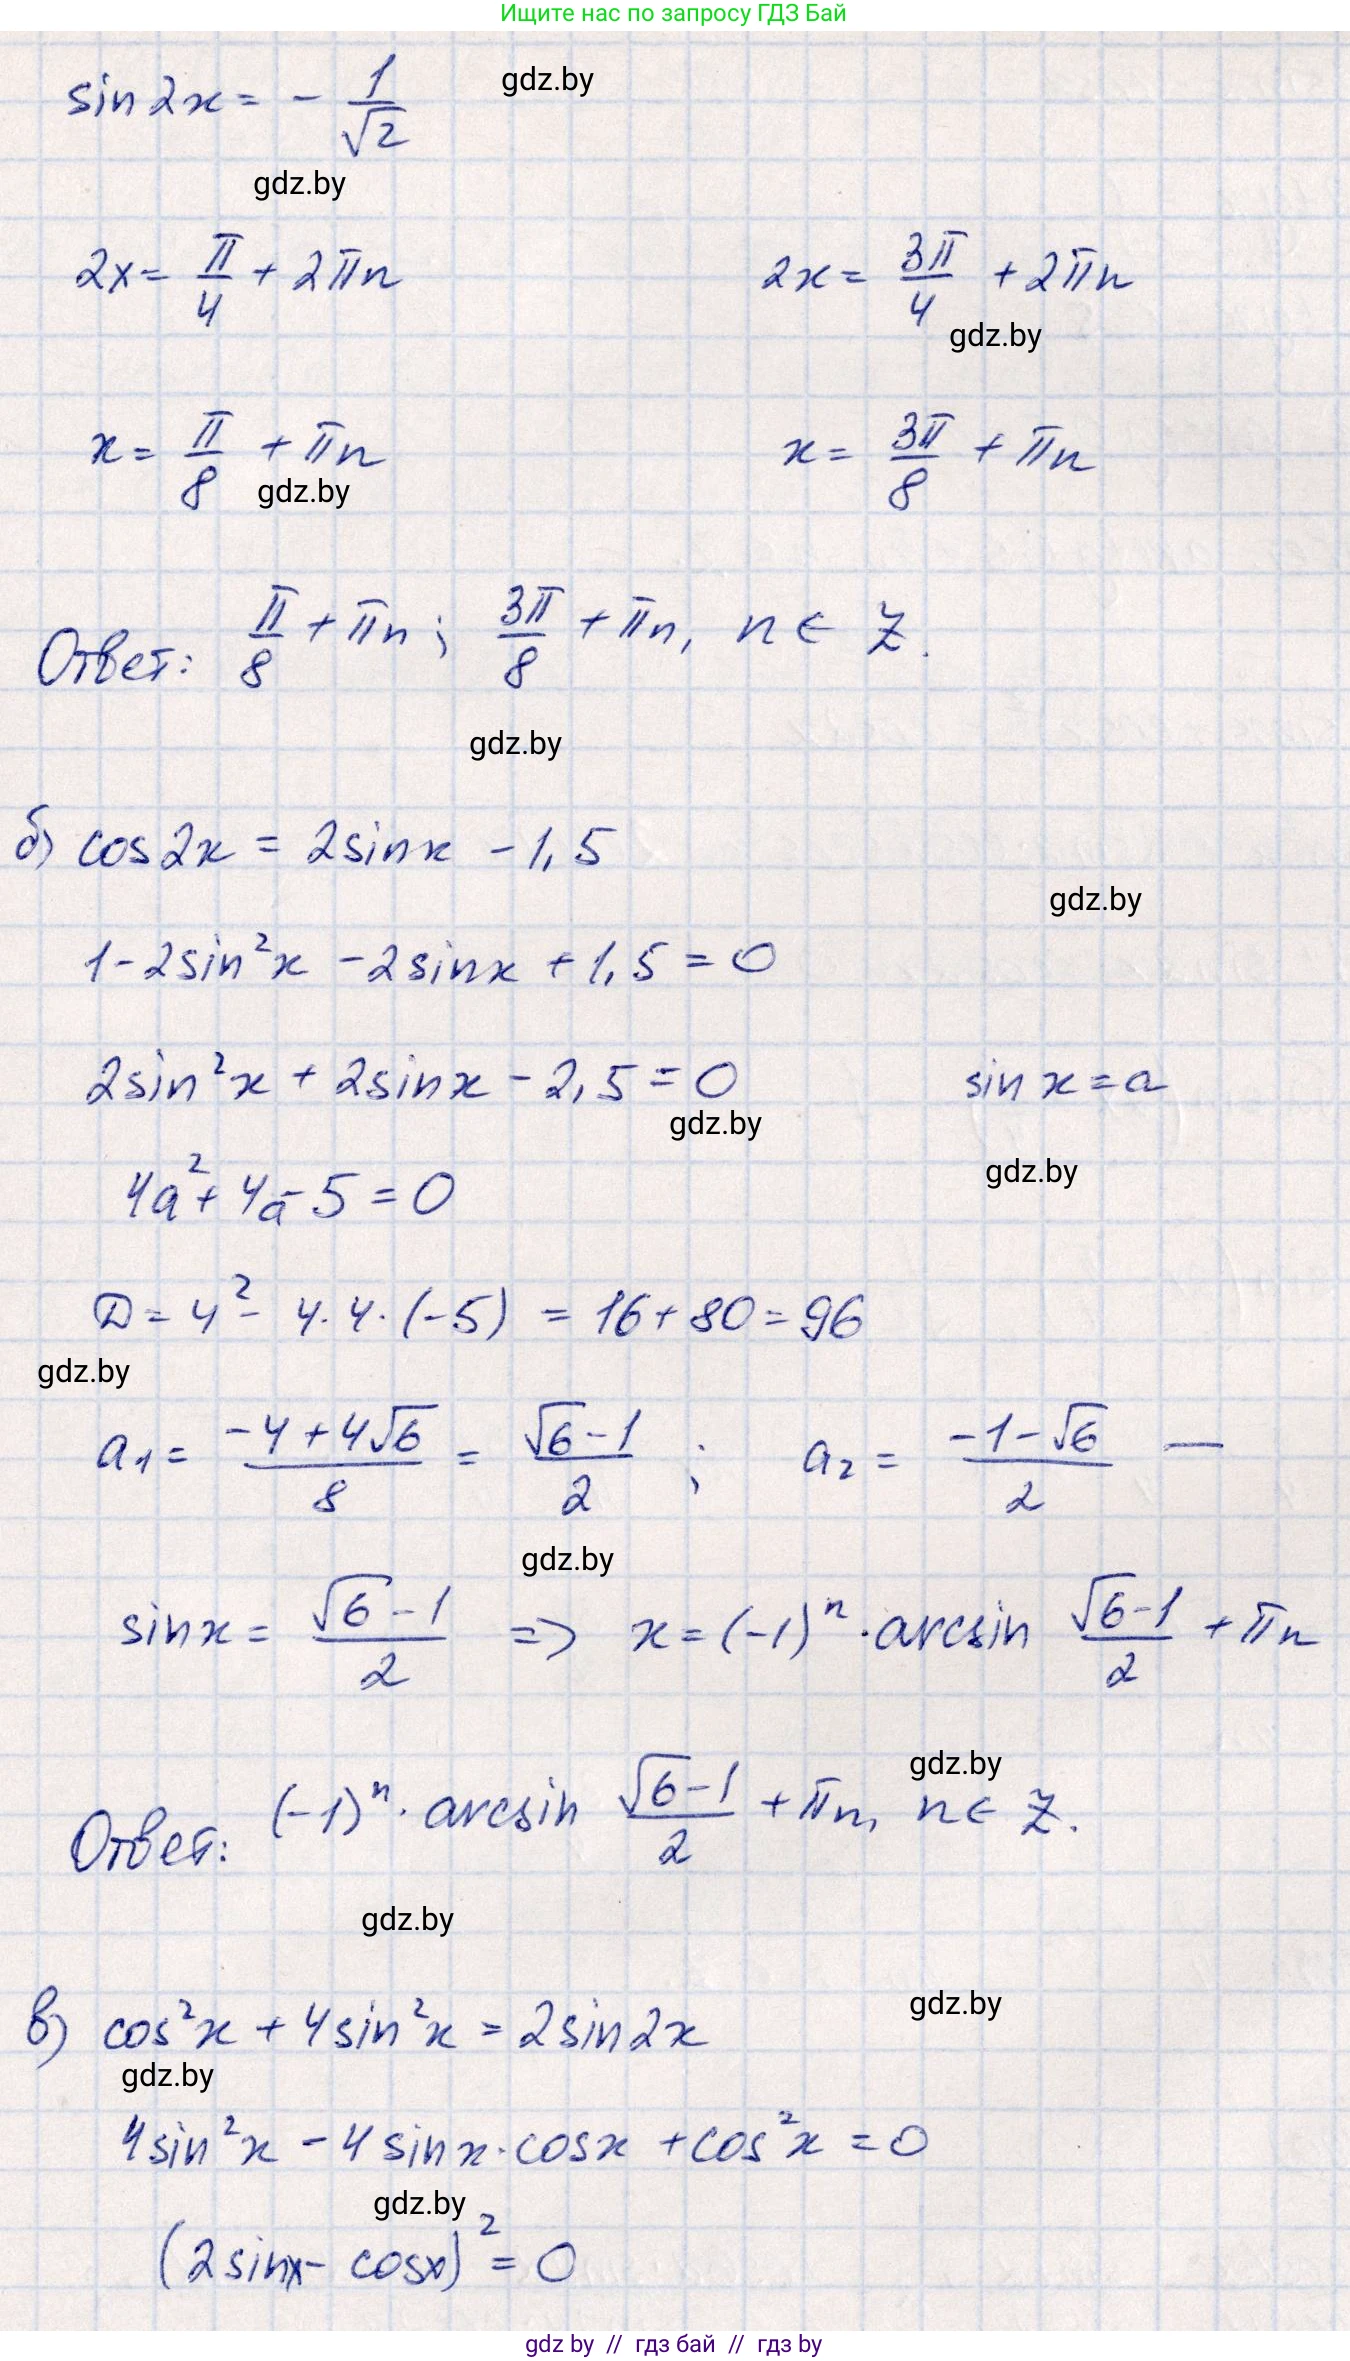 Ищите нас по запросу ГДЗ Бай
sin 2x = - 1/√2
gdz.by
gdz.by
2x = π/4 + 2πn 2x = 3π/4 + 2πn
gdz.by
x = π/8 + πn x = 3π/8 + πn
gdz.by
Ответ: π/8 + πn; 3π/8 + πn, n ∈ Z.
gdz.by
б) cos2x = 2sinx - 1,5
gdz.by
1 - 2sin²x - 2sinx + 1,5 = 0
2sin²x + 2sinx - 2,5 = 0 sin x = a
gdz.by
gdz.by
4a² + 4a - 5 = 0
D = 4² - 4·4·(-5) = 16 + 80 = 96
gdz.by
a₁ = (-4 + 4√6)/8 = (√6 - 1)/2 ; a₂ = (-1 - √6)/2 —
gdz.by
sinx = (√6 - 1)/2 => x = (-1)ⁿ · arcsin (√6 - 1)/2 + πn
gdz.by
Ответ: (-1)ⁿ · arcsin (√6 - 1)/2 + πn, n ∈ Z.
gdz.by
gdz.by
в) cos²x + 4sin²x = 2sin2x
gdz.by
4sin²x - 4sinx·cosx + cos²x = 0
gdz.by
(2sinx - cosx)² = 0
gdz by // гдз бай // гдз by